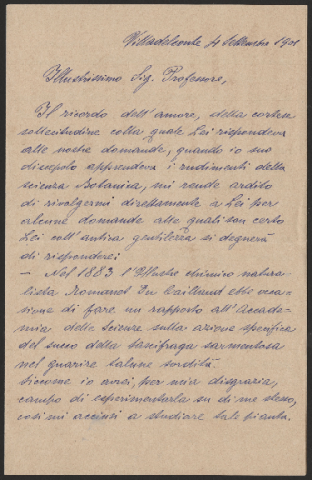 Villadeleonte 4 Settembre 1901
Illustrissimo Sig. Professore,
Il ricordo dell'amore, della cortese
sollecitudine colla quale Lei rispondeva
alle nostre domande, quando io suo
discepolo apprendeva i rudimenti della
scienza Botanica, mi rende ardito
di rivolgermi direttamente a Lei per
alcune domande alle quali son certo
Lei coll'antica gentilezza si degnerà
di rispondere:
— Nel 1883 l'Illustre chimico natura
lista Romanet Du Caillaud ebbe occa=
sione di fare un rapporto all'Accade=
mia delle Scienze sulla azione specifica
del succo della Sassifraga sarmentosa
nel guarire talune sordità.
Siccome io avevo, per mia disgrazia,
campo di esperimentarla su di me stesso,
così mi accinsi a studiare tale pianta.